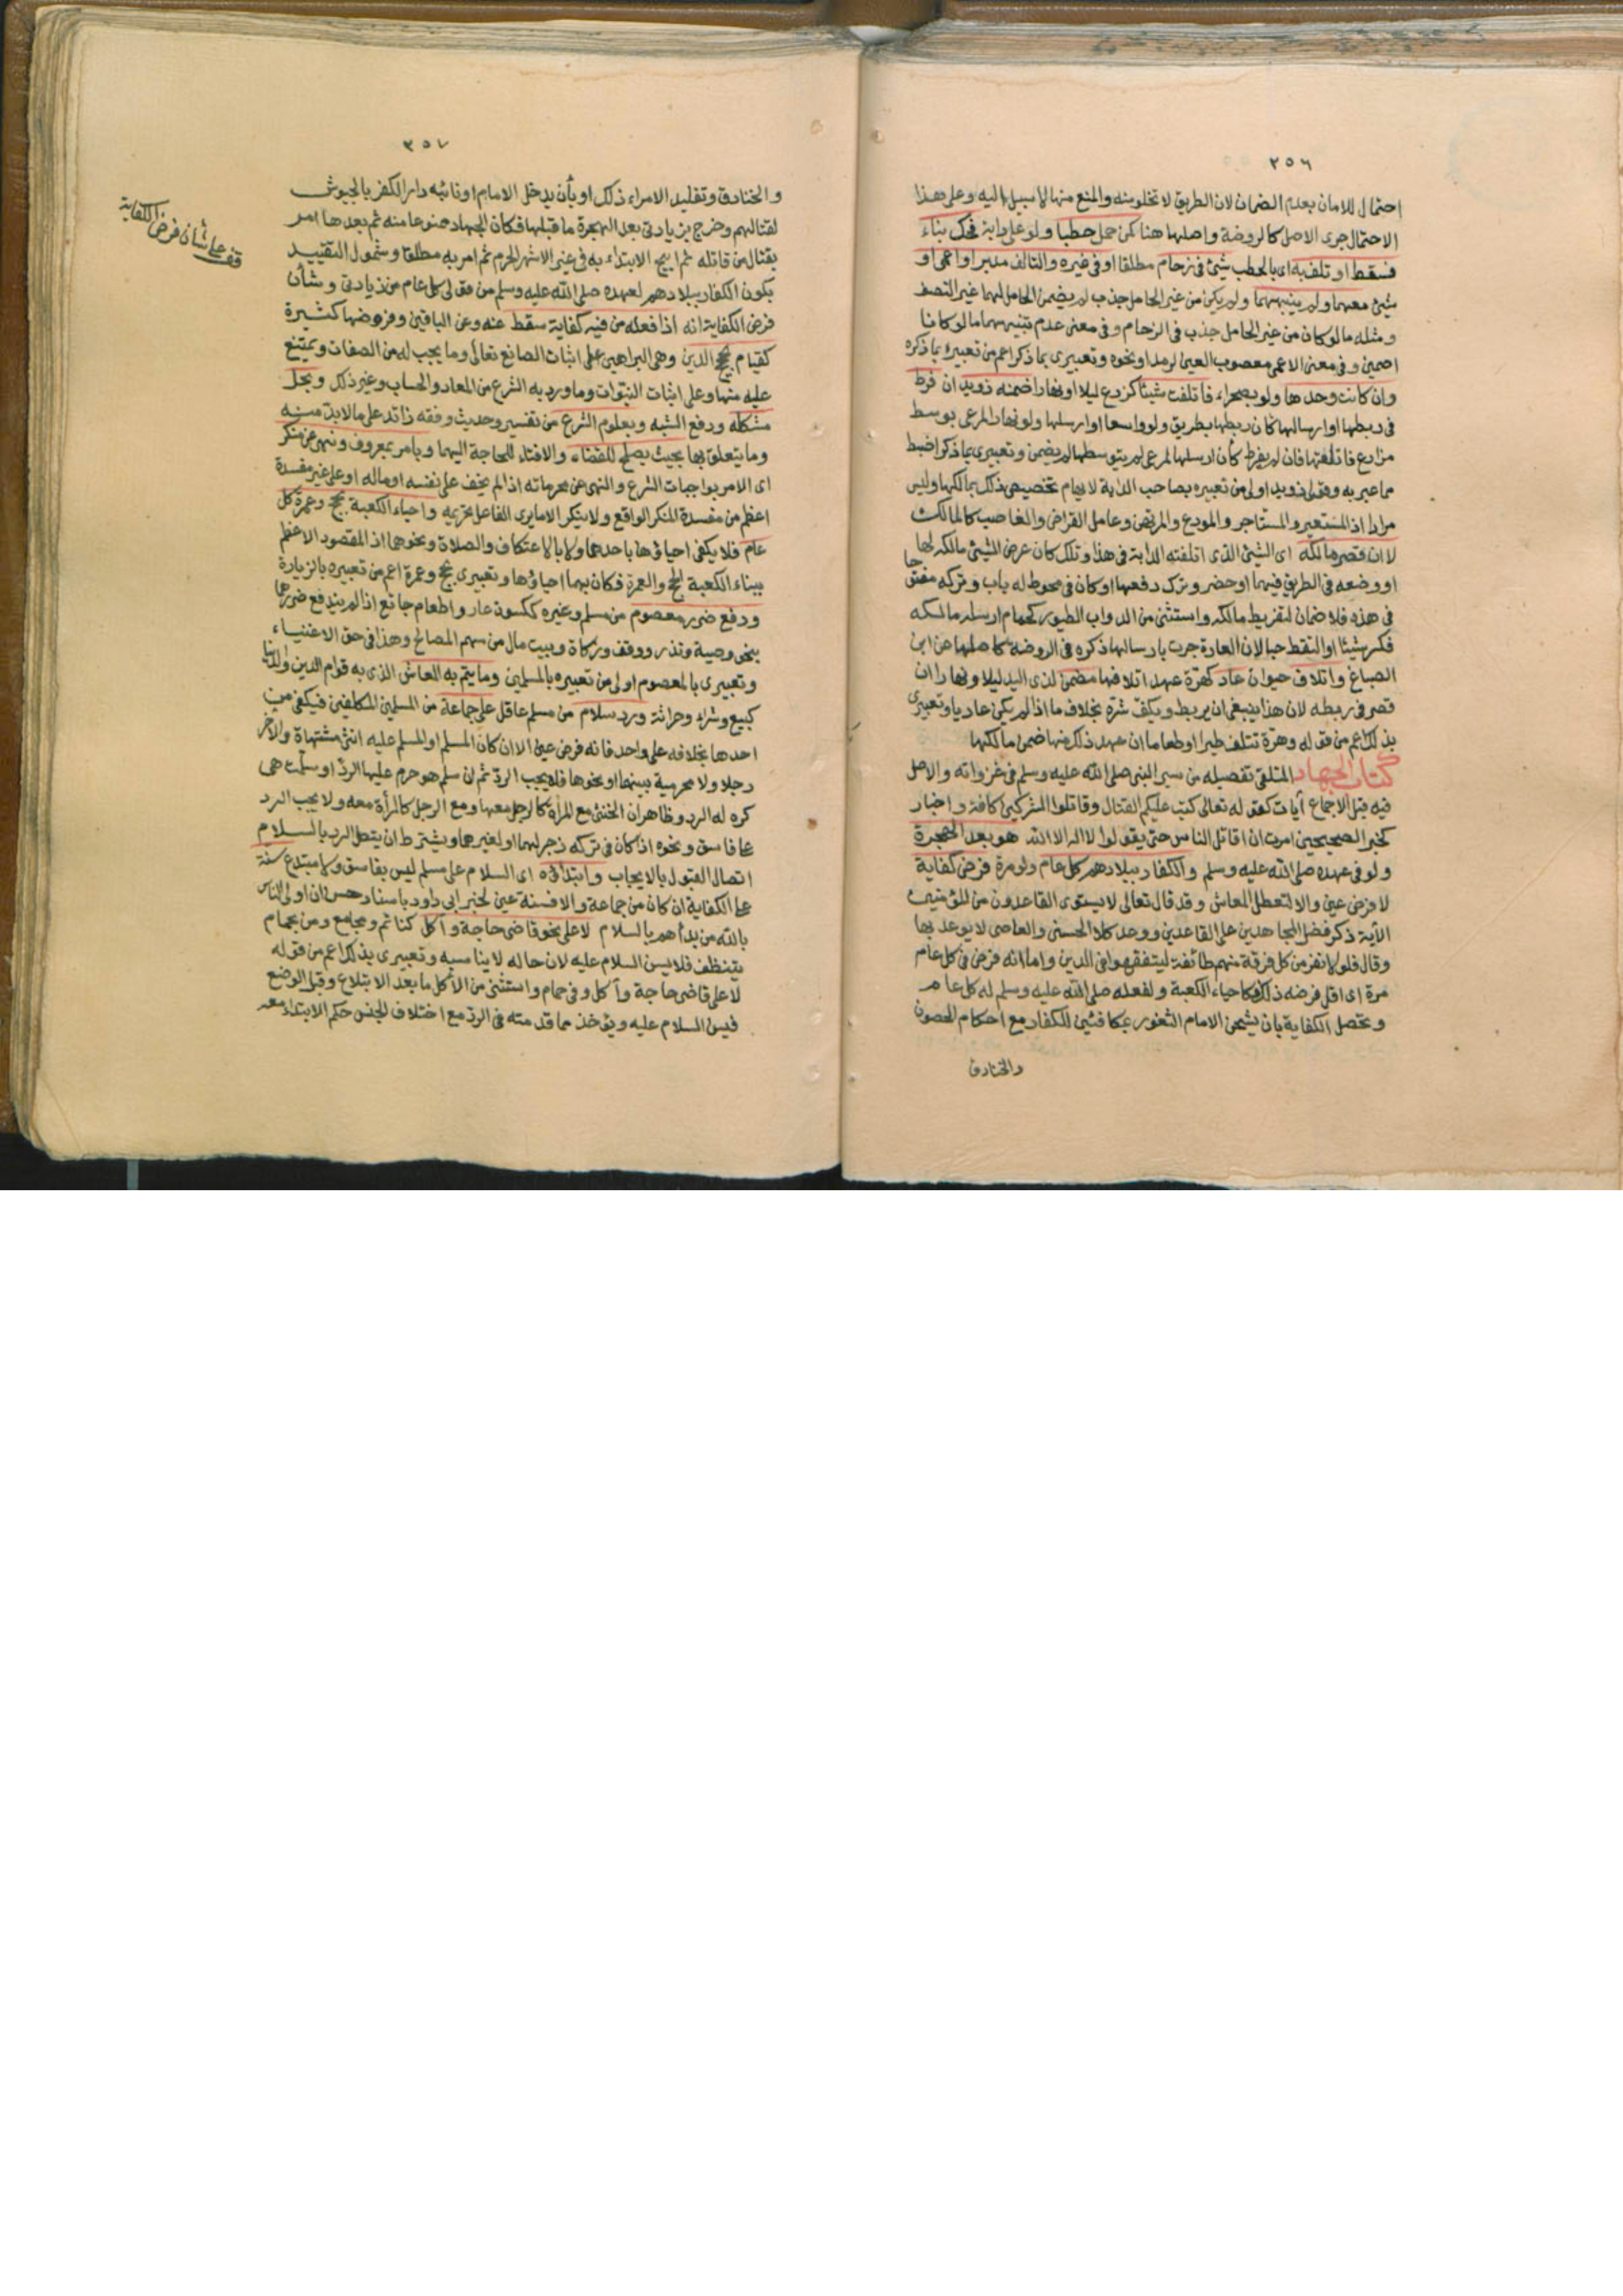 ٢٥٦
احتمال للامان بعدم الضمان لان الطريق لا تخلو منه والمنع منها لا سبيل اليه وعلى هذا
الاحتمال جرى الاصل كالروضة واصلها هنا كمن حمل حطبا ولو على دابة فحك بناء
فسقط او تلف به اى بالحطب شئ فى زحام مطلقا او فى غيره والتالف مدبر او اعمى او
شئ معهما ولم ينبههما ولم يكن من غير الحامل جذب لم يضمن الحامل لهما غير النصف
ومثله ما لو كان من غير الحامل جذب فى الزحام وفى معنى عدم تنبيههما ما لو كانا
اصمين وفى معنى الاعمى معصوب العين لرمد او نحوه وتعبيرى بما ذكر اعم من تعبيره بما ذكره
وان كانت وحدها ولو بصحراء فاتلفت شيئا كزرع ليلا او نهارا ضمنه ذو يد ان فرط
فى ربطها او ارسالها كان ربطها بطريق ولو واسعا او ارسلها ولو نهارا لمرعى بوسط
مزارع فاتلفتها فان لم يفرط كأن ارسلها لمرعى لم يتوسطها لم يضمن وتعبيرى بما ذكر اضبط
مما عبر به وقولى ذو يد اولى من تعبيره بصاحب الدابة لايهام تخصيص ذلك بمالكها وليس
مرادا اذ المستعير والمستاجر والمودع والمرتهن وعامل القراض والغاصب كالمالك
لا ان قصر مالكه اى الشئ الذى اتلفته الدابة فى هذا وتلك كان عرض الشئ مالكه لها
او وضعه فى الطريق فيهما او حضر وترك دفعها او كان فى محوط له باب وتركه مفتوحا
فى هذه فلا ضمان لتفريط مالكه واستثنى من الدواب الطيور كحمام ارسله مالكه
فكسر شيئا او التقط حبا لان العادة جرت بارسالها ذكره فى الروضة كاصلها عن ابن
الصباغ واتلاف حيوان عاد كهرة عهد اتلافها مضمن لذى اليد ليلا ونهارا ان
قصر فى ربطه لان هذا ينبغى ان يربط ويكف شره بخلاف ما اذا لم يكن عاديا وتعبيرى
بذلك اعم من قوله وهرة تتلف طيرا او طعاما ان عهد ذلك منها ضمن مالكها
كتاب الجهاد المتلقى تفصيله من سير النبى صلى الله عليه وسلم فى غزواته والاصل
فيه قبل الاجماع آيات كقوله تعالى كتب عليكم القتال وقاتلوا المشركين كافة واخبار
كخبر الصحيحين امرت ان اقاتل الناس حتى يقولوا لا اله الا الله هو بعد الهجرة
ولو فى عهده صلى الله عليه وسلم والكفار ببلادهم كل عام ولو مرة فرض كفاية
لا فرض عين والا لتعطل المعاش وقد قال تعالى لا يستوى القاعدون من المؤمنين
الآية ذكر فضل المجاهدين على القاعدين ووعد كلا الحسنى والعاصى لا يوعد بها
وقال فلولا نفر من كل فرقة منهم طائفة ليتفقهوا فى الدين واما انه فرض فى كل عام
مرة اى اقل فرضه ذلك فكاحياء الكعبة ولفعله صلى الله عليه وسلم له كل عام
وتحصل الكفاية بان يشحن الامام الثغور بمكافئين للكفار مع احكام الحصون
والخنادق
٣٥٧
والخنادق وتقليد الامراء ذلك او بأن يدخل الامام او نائبه دار الكفر بالجيوش
لقتالهم وخرج بزيادتى بعد الهجرة ما قبلها فكان الجهاد ممنوعا منه ثم بعدها امر
بقتال من قاتله ثم ابيح الابتداء به فى غير الاشهر الحرم ثم امر به مطلقا وشمول التقييد
بكون الكفار ببلادهم لعهده صلى الله عليه وسلم من قولى كل عام من زيادتى وشأن
فرض الكفاية انه اذا فعله من فيه كفاية سقط عنه وعن الباقين وفروضها كثيرة
كقيام بحجج الدين وهى البراهين على اثبات الصانع تعالى وما يجب له من الصفات ويمتنع
عليه منها وعلى اثبات النبوات وما ورد به الشرع من المعاد والحساب وغير ذلك وبحل
مشكله ودفع الشبه وبعلوم الشرع من تفسير وحديث وفقه زائد على ما لا بد منه
وما يتعلق بها بحيث يصلح للقضاء والافتاء للحاجة اليهما وبامر بمعروف ونهى عن منكر
اى الامر بواجبات الشرع والنهى عن محرماته اذا لم يخف على نفسه او ماله او على غيره مفسدة
اعظم من مفسدة المنكر الواقع ولا ينكر الا ما يرى الفاعل تحريمه واحياء الكعبة بحج وعمرة كل
عام فلا يكفى احياؤها باحدهما ولا بالاعتكاف والصلاة ونحوهما اذ المقصود الاعظم
ببناء الكعبة الحج والعمرة فكان بهما احياؤها وتعبيرى بحج وعمرة اعم من تعبيره بالزيارة
ودفع ضرر معصوم من مسلم وغيره ككسوة عار واطعام جائع اذا لم يندفع ضررهما
بنحو وصية ونذر ووقف وزكاة وبيت مال من سهم المصالح وهذا فى حق الاغنياء
وتعبيرى بالمعصوم اولى من تعبيره بالمسلمين وما يتم به المعاش الذى به قوام الدين والدنيا
كبيع وشراء وحراثة ورد سلام من مسلم عاقل على جماعة من المسلمين المكلفين فيكفى من
احدها بخلافه على واحد فانه فرض عين الا ان كان المسلم او المسلم عليه انثى مشتهاة والآخر
رجلا ولا محرمية بينهما او نحوها فلا يجب الرد ثم ان سلم هو حرم عليها الرد او سلمت هى
كره له الرد وظاهر ان الخنثى مع المرأة كالرجل معها ومع الرجل كالمرأة معه ولا يجب الرد
على فاسق ونحوه اذا كان فى تركه زجر لهما او لغيرهما ويشترط ان يتصل الرد بالسلام
اتصال القبول بالايجاب وابتداؤه اى السلام على مسلم ليس بفاسق ولا مبتدع سنة
على الكفاية ان كان من جماعة والا فسنة عين لخبر ابى داود باسناد حسن ان اولى الناس
بالله من بدأهم بالسلام لا على نحو قاضى حاجة وآكل كنائم ومجامع ومن بحمام
يتنظف فلا يسن السلام عليه لان حاله لا يناسبه وتعبيرى بذلك اعم من قوله
لا على قاضى حاجة وآكل وفى حمام واستثنى من الآكل ما بعد الابتلاع وقبل الوضع
فيسن السلام عليه ويؤخذ مما قدمته فى الرد مع اختلاف الجنس حكم الابتداء معه
قف على شأن فرض الكفاية